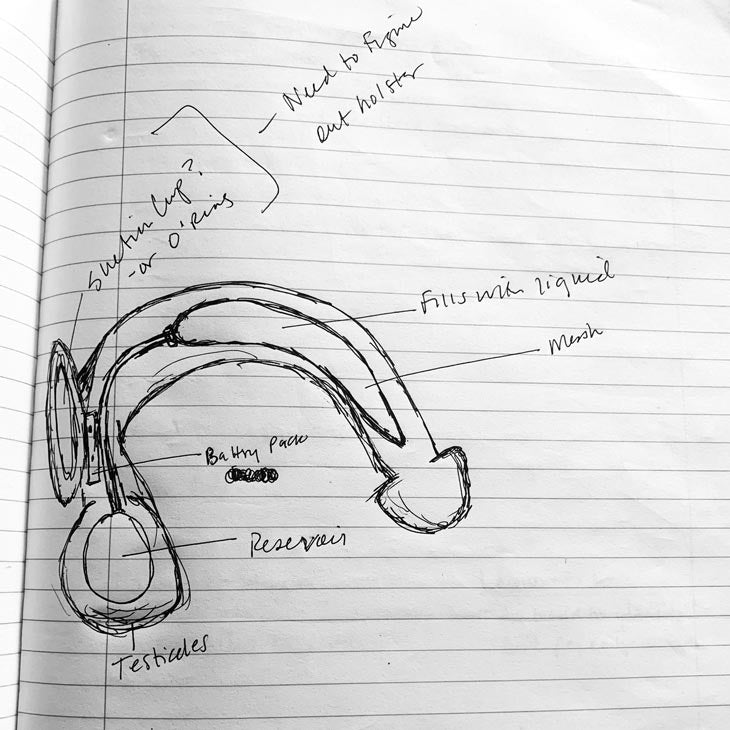 Need to Figure
out holster
Suction Cup?
-or O'Ring
Fills with liquid
Mesh
Battery Pack
Reservoir
Testicles